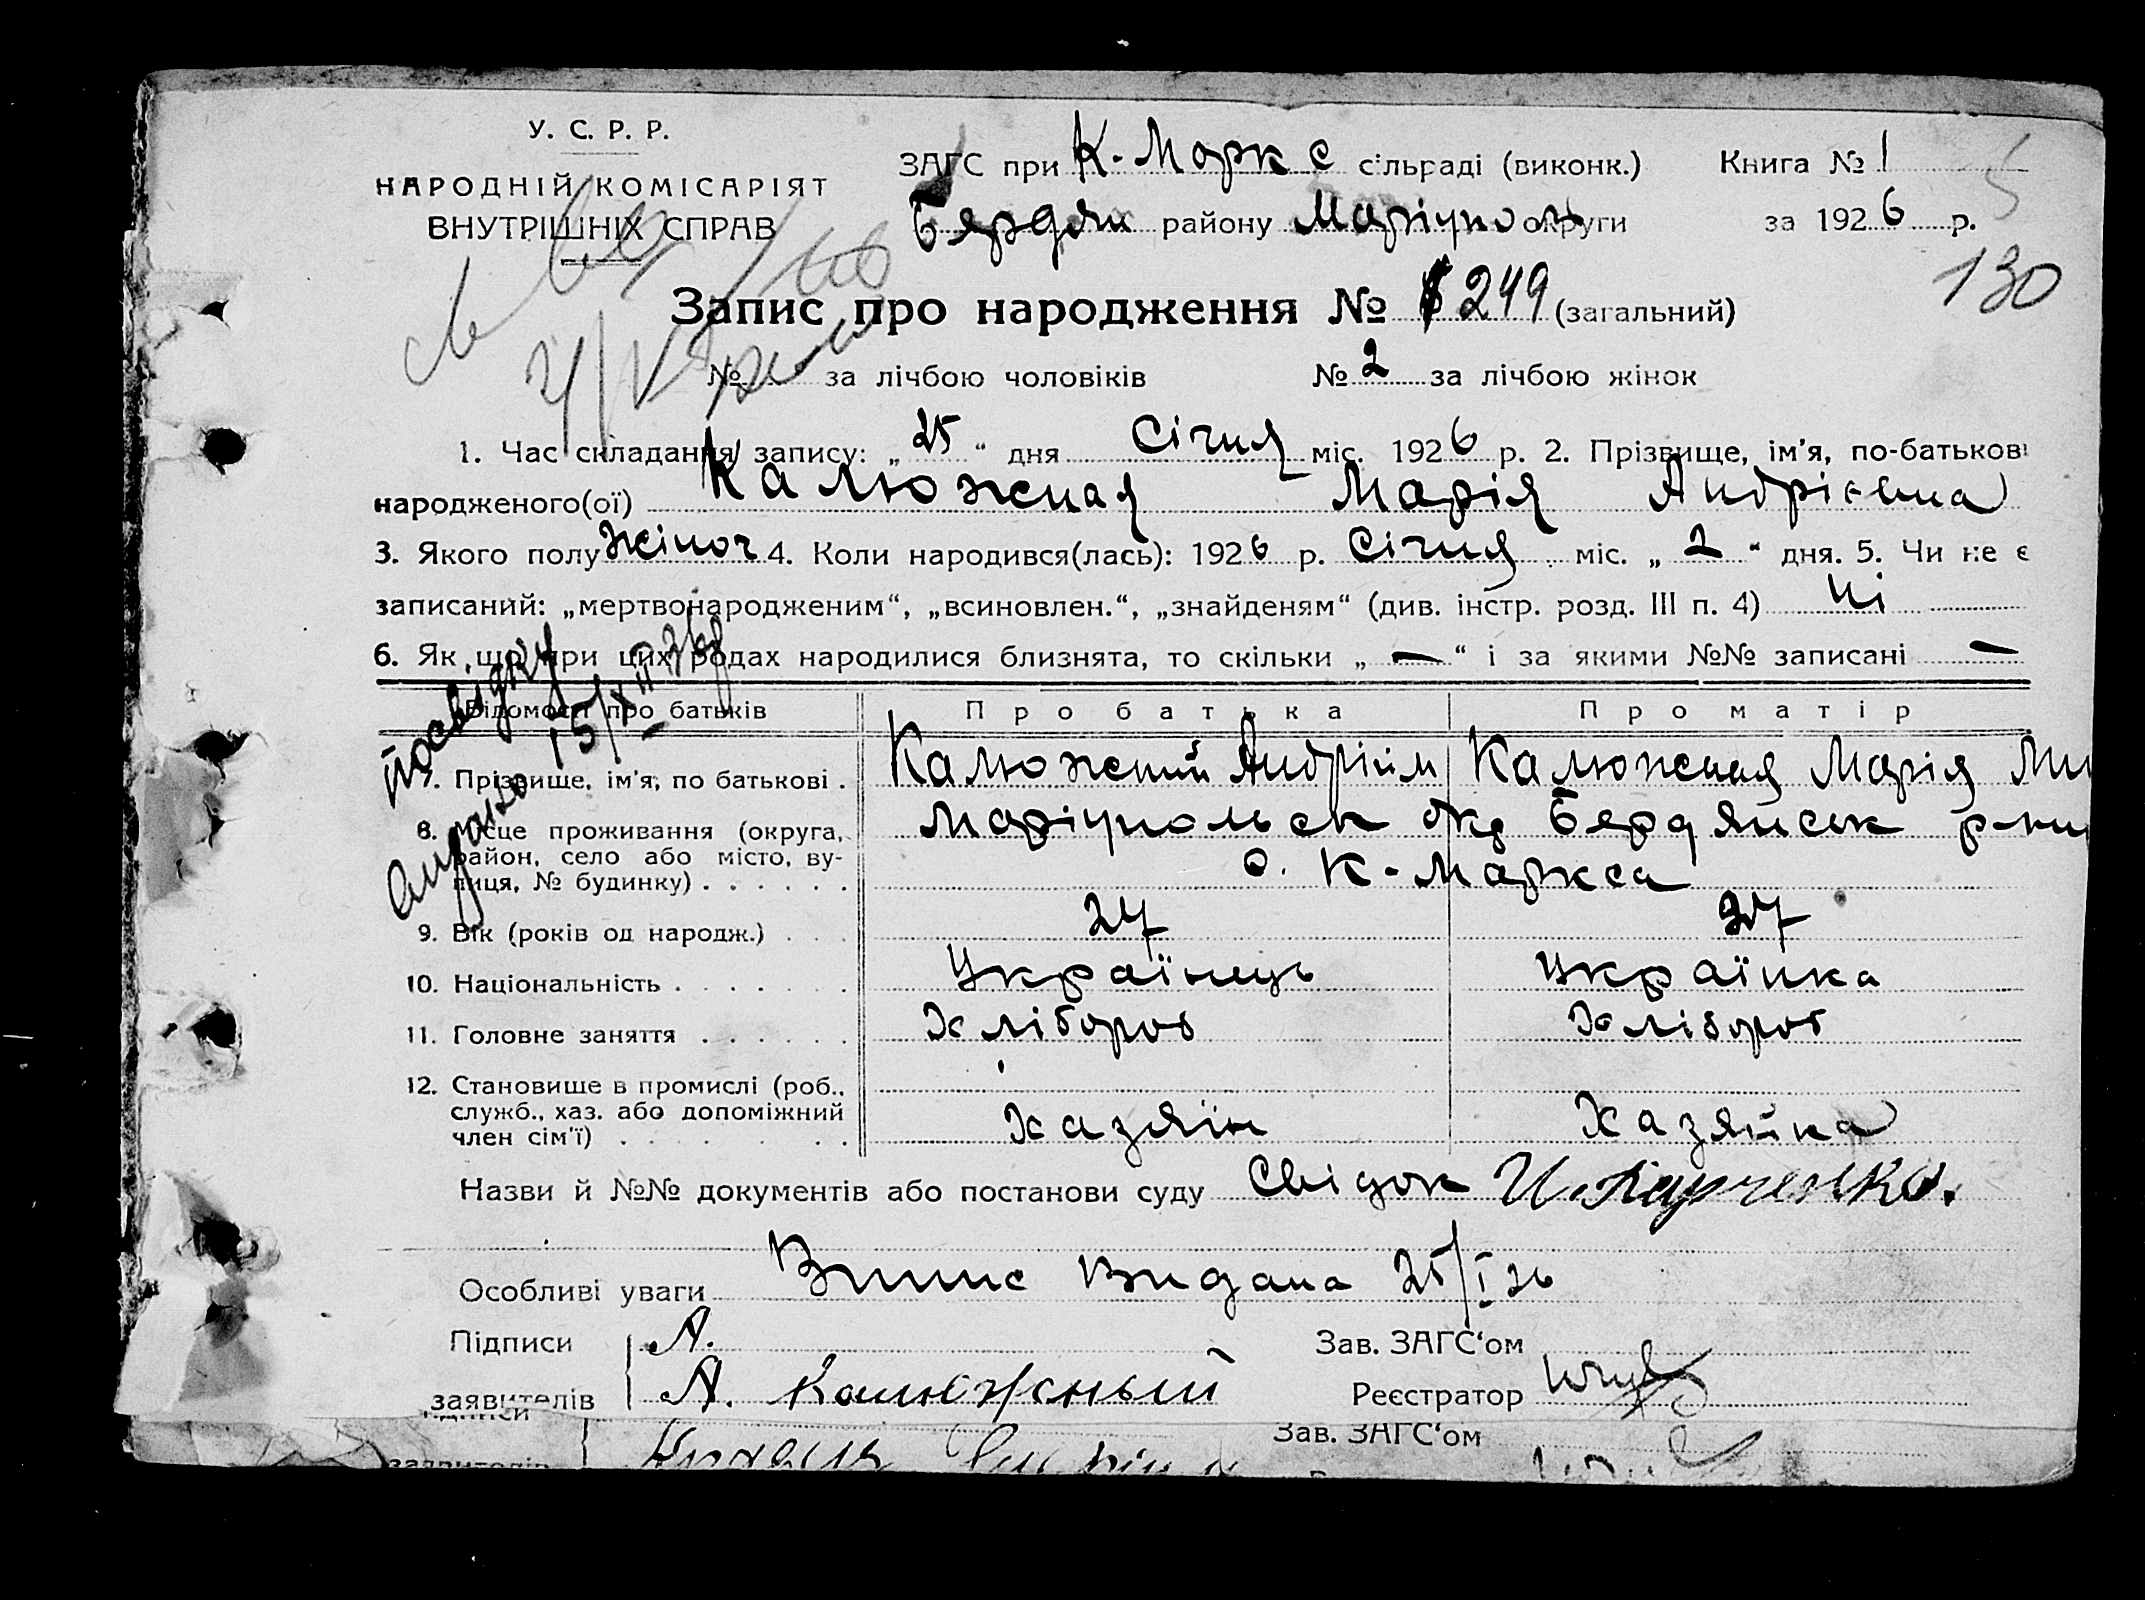 У. С. Р. Р.
НАРОДНІЙ КОМІСАРІЯТ
ВНУТРІШНІХ СПРАВ
ЗАГС при К. Маркс сільраді (виконк.) Книга № 1
Бердян району Маріупол округи за 1926 р.
130
Запис про народження № 249 (загальний)
№ за лічбою чоловіків № 2 за лічбою жінок
1. Час складання запису: „ 25 “ дня Січня міс. 1926 р. 2. Прізвище, ім'я, по-батькові
народженого(ої) Калюжная Марія Андрієвна
3. Якого полу жіноч 4. Коли народився(лась): 1926 р. Січня міс. „ 2 “ дня. 5. Чи не є
записаний: „мертвонародженим“, „всиновлен.“, „знайденям“ (див. інстр. розд. III п. 4) ні
6. Як що при цих родах народилися близнята, то скільки „ — “ і за якими №№ записані —
Відомості про батьків Про батька Про матір
7. Прізвище, ім'я, по батькові . Калюжний Андрій М Калюжная Марія Ми
8. Місце проживання (округа, район, село або місто, вулиця, № будинку) . . . . . . Маріупольск окр Бердянськ р-ни
с. К. Маркса
9. Вік (років од народж.) . . . 27 27
10. Національність . . . . . . . Українець Українка
11. Головне заняття . . . . . . Хлібороб Хлібороб
12. Становище в промислі (роб., служб., хаз. або допоміжний член сім'ї) . . . . . . Хазяїн Хазяйка
Назви й №№ документів або постанови суду Свідок
Особливі уваги Випис видана 25/I 26
Підписи А. Зав. ЗАГС‘ом
заявителів А. Калюжный Реєстратор
Зав. ЗАГС‘ом
заявителів